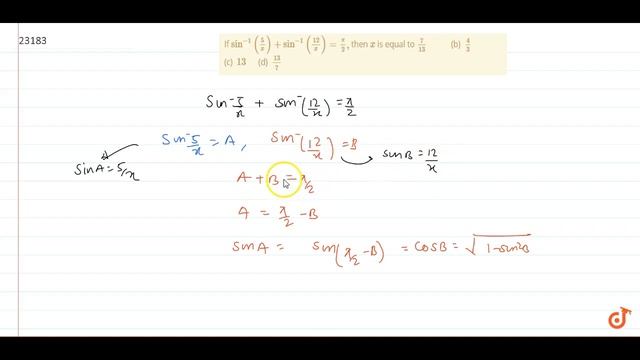 23183
If sin⁻¹(5/x) + sin⁻¹(12/x) = π/2, then x is equal to 7/13 (b) 4/3
(c) 13 (d) 13/7
Sin⁻ 5/x + Sin⁻(12/x) = π/2
Sin⁻ 5/x = A, Sin⁻(12/x) = B
SinA = 5/x
SinB = 12/x
A + B = π/2
A = π/2 - B
SinA = Sin(π/2 - B) = CosB = √1-Sin²B